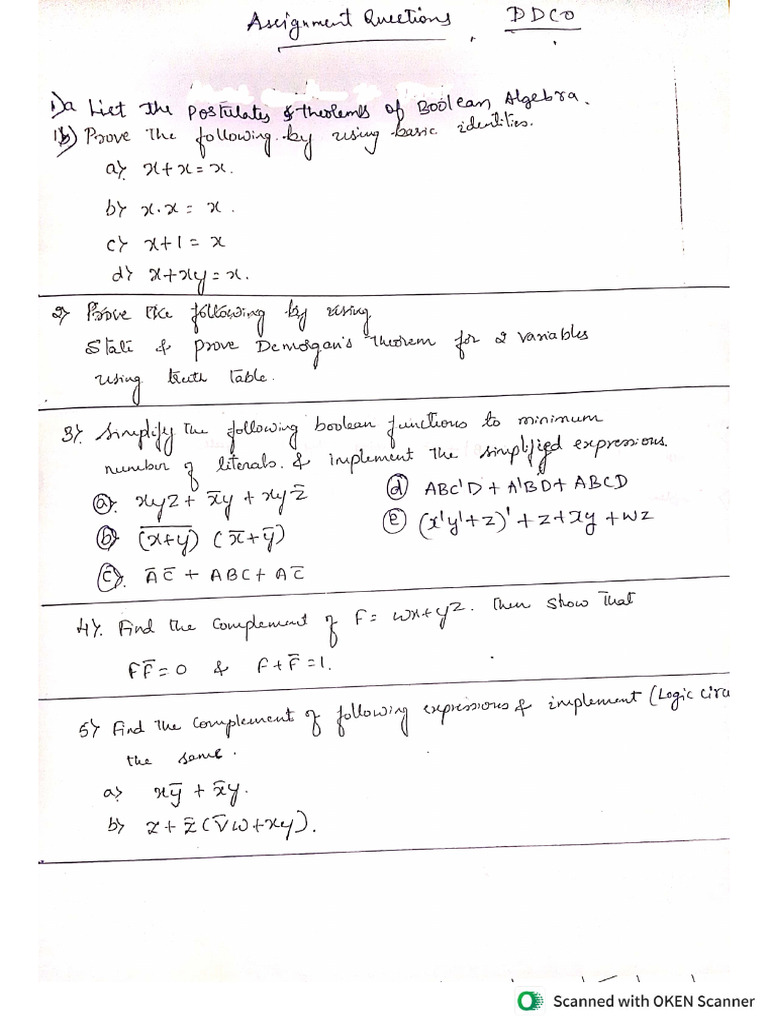 Assignment Questions, DDCO
1)a List the Postulates & theorems of Boolean Algebra.
1b) Prove the following by using basic identities.
a) x+x=x.
b) x.x = x.
c) x+1 = x
d) x+xy=x.
2) Prove the following by using
State & prove Demorgan's Theorem for 2 variables
using truth table.
3). Simplify the following boolean functions to minimum
number of literals. & implement the simplified expressions.
(a). xyz + x̅y + xyz̅
(d) ABC'D + A'BD + ABCD
(b) (x+y)̅ (x̅+y̅)
(e) (x'y'+z)' + z+xy +wz
(c). A̅C̅ + ABC + AC̅
4). Find the complement of F= wx+yz. Then show that
FF̅=0 & F+F̅=1.
5) Find the complement of following expressions & implement (Logic circu
the same.
a) xy̅ + x̅y.
b) z+z̅(v̅w+xy).
Scanned with OKEN Scanner